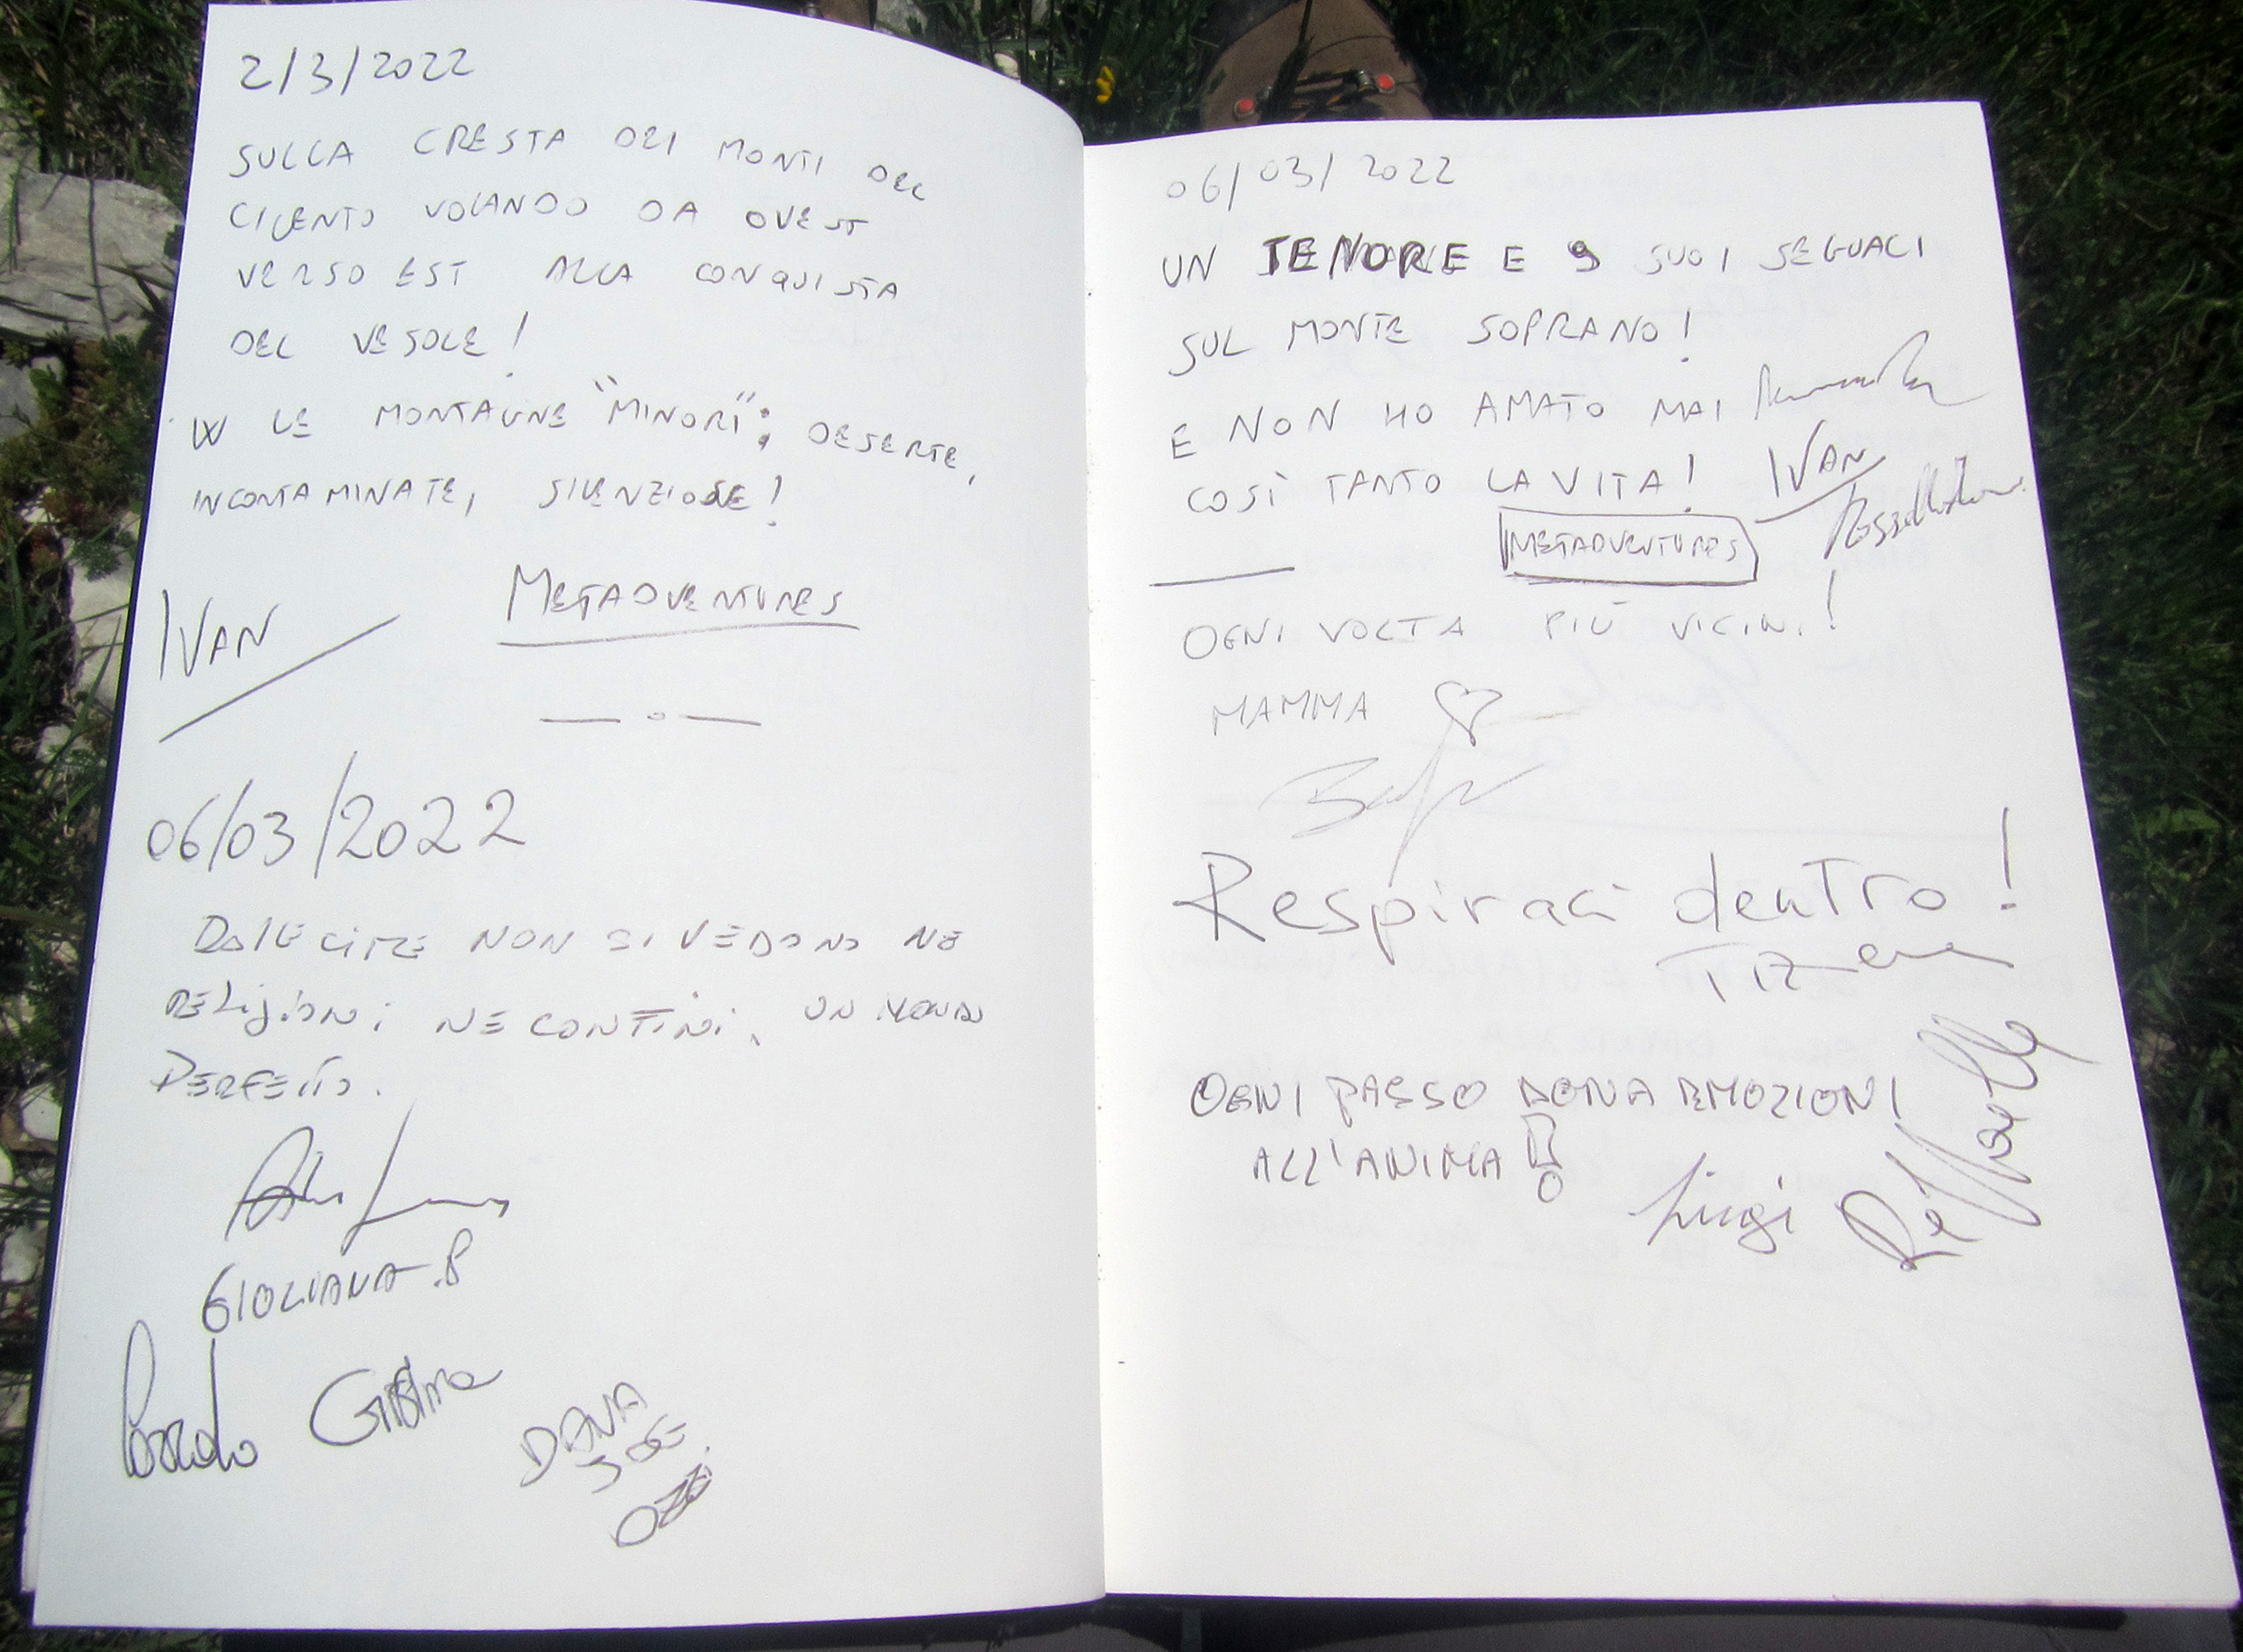 2/3/2022
SULLA CRESTA DEI MONTI DEL
CILENTO VOLANDO DA OVEST
VERSO EST ALLA CONQUISTA
DEL VESOLE!
W LE MONTAGNE "MINORI"; DESERTE,
INCONTAMINATE, SILENZIOSE!
IVAN METADVENTURES
06/03/2022
DALLE CIME NON SI VEDONO NE
RELIGIONI NE CONFINI, UN MONDO
PERFETTO.
GIULIANA.P
DANA
JOE
OZZI
06/03/2022
UN TENORE E 9 SUOI SEGUACI
SUL MONTE SOPRANO!
E NON HO AMATO MAI
COSÌ TANTO LA VITA! IVAN
METADVENTURES
OGNI VOLTA PIÙ VICINI!
MAMMA
Respiraci dentro!
OGNI PASSO DONA EMOZIONI
ALL'ANIMA!
Luigi
Raffaella